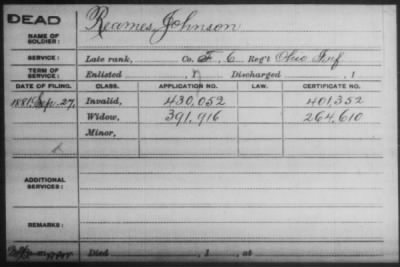 DEAD
NAME OF SOLDIER: Reames, Johnson
SERVICE: Late rank, Co. F, 6 Reg't Ohio Inf
TERM OF SERVICE: Enlisted , 1 Discharged , 1
DATE OF FILING. CLASS. APPLICATION NO. LAW. CERTIFICATE NO.
1881, Sep. 27, Invalid, 430,052 401,352
Widow, 391,916 264,610
Minor,
ADDITIONAL SERVICES:
REMARKS:
Died , 1 , at